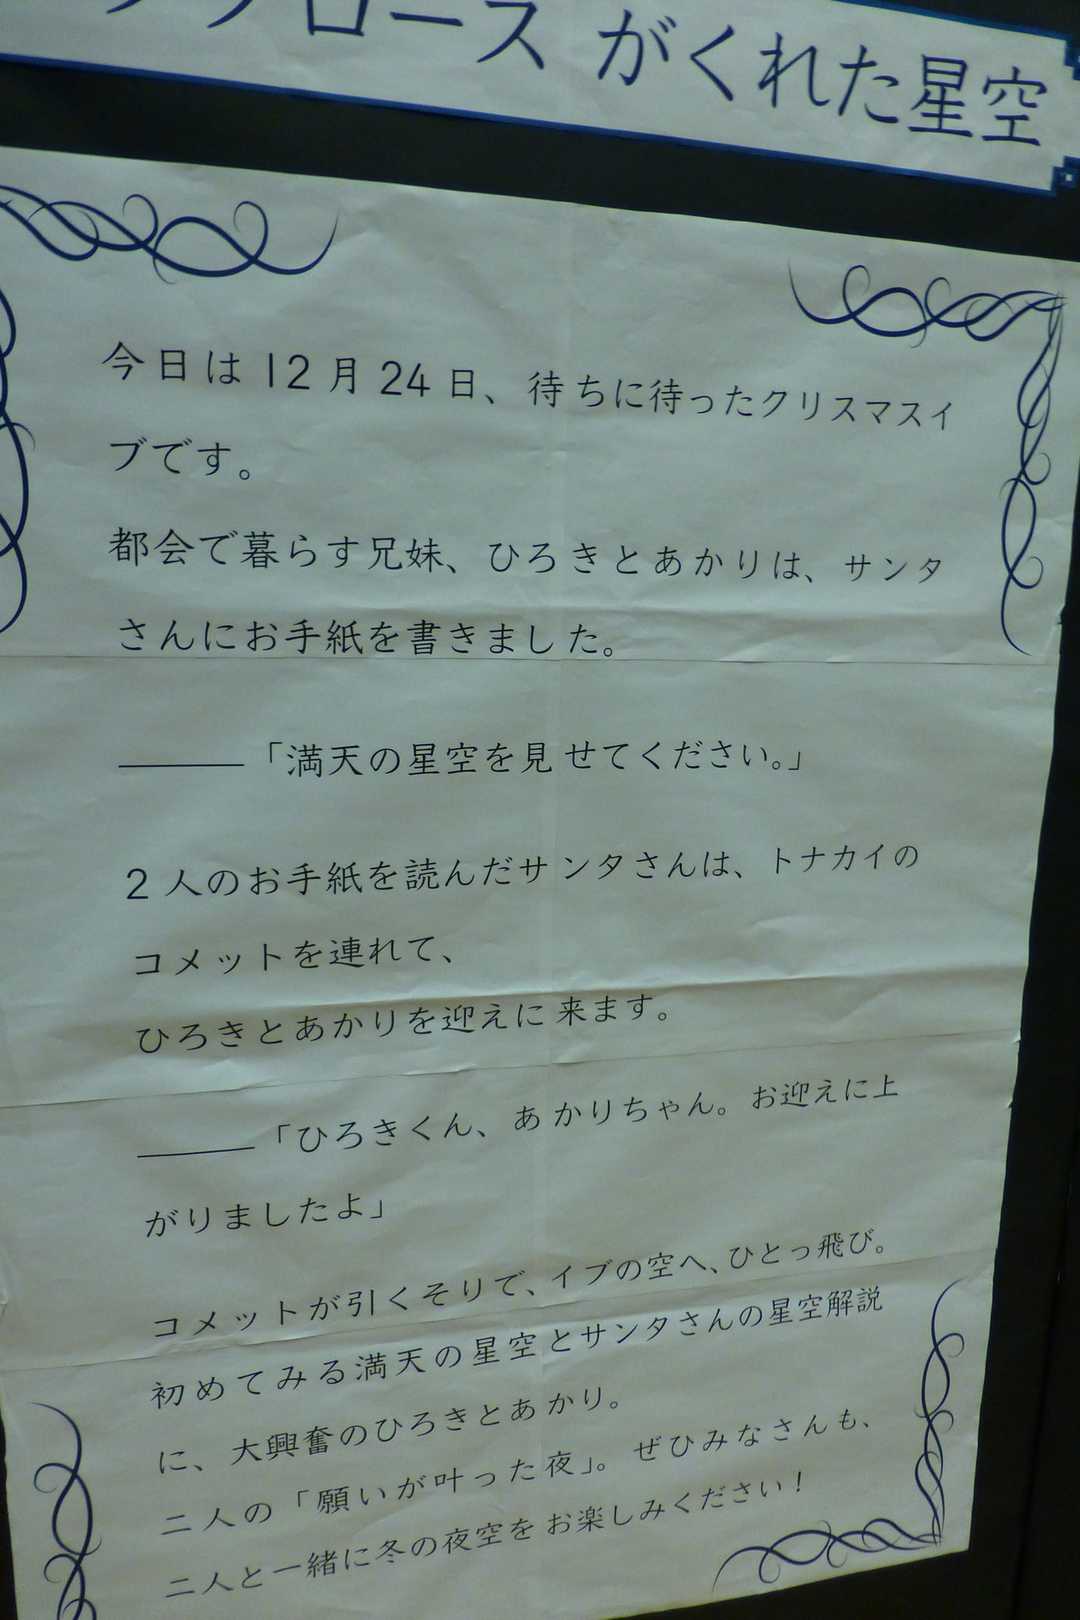 クロースがくれた星空
今日は12月24日、待ちに待ったクリスマスイ
ブです。
都会で暮らす兄妹、ひろきとあかりは、サンタ
さんにお手紙を書きました。
―――「満天の星空を見せてください。」
2人のお手紙を読んだサンタさんは、トナカイの
コメットを連れて、
ひろきとあかりを迎えに来ます。
―――「ひろきくん、あかりちゃん。お迎えに上
がりましたよ」
コメットが引くそりで、イブの空へ、ひとっ飛び。
初めてみる満天の星空とサンタさんの星空解説
に、大興奮のひろきとあかり。
二人の「願いが叶った夜」。ぜひみなさんも、
二人と一緒に冬の夜空をお楽しみください！